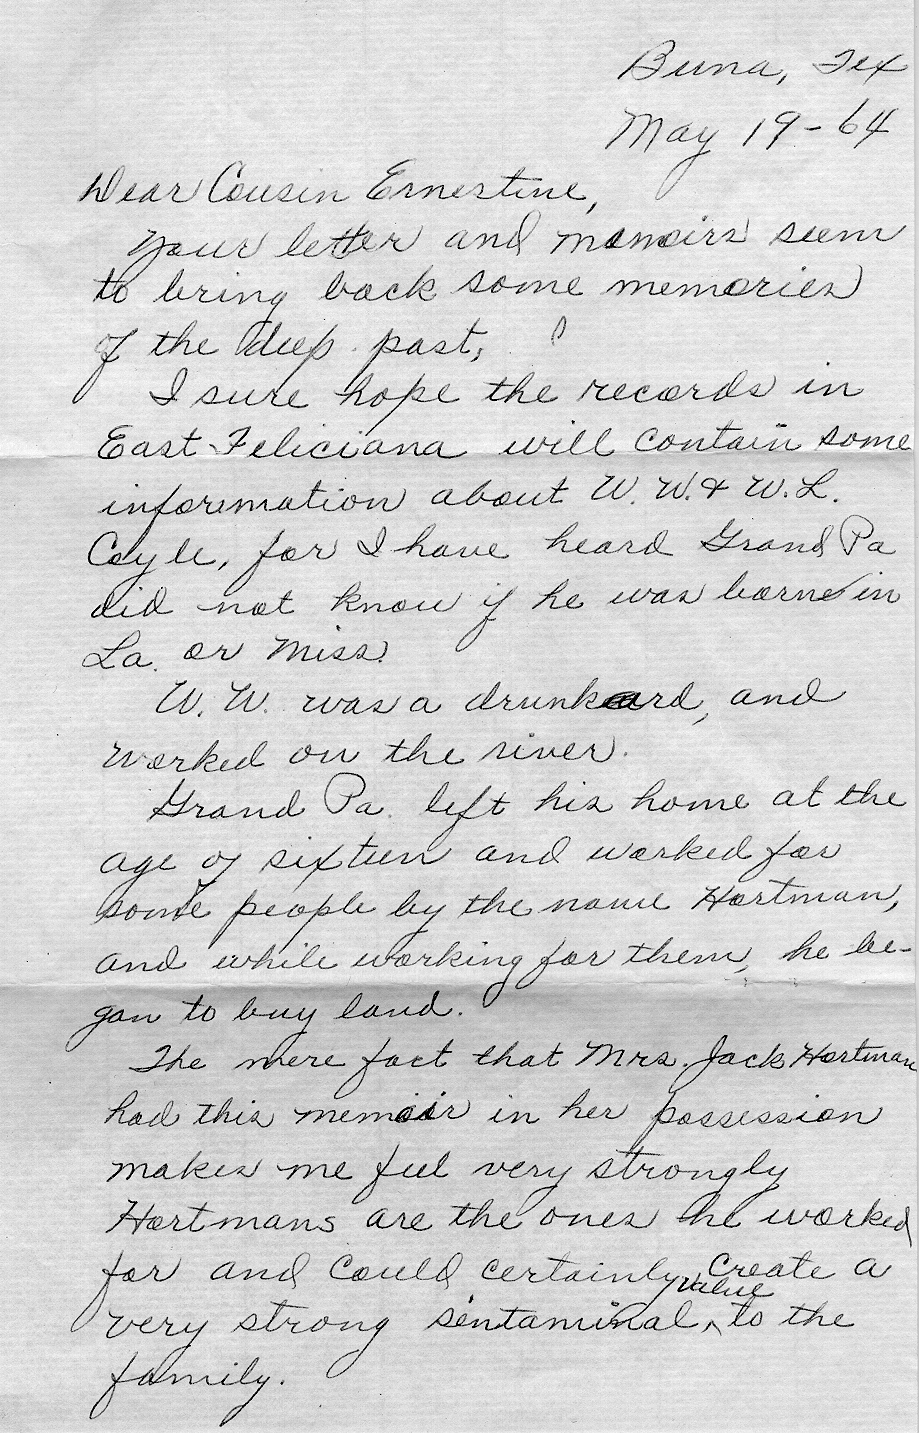 Buna, Tex
May 19-64
Dear Cousin Ernestine,
Your letter and memoirs seem
to bring back some memories
of the deep past,
I sure hope the records in
East Feliciana will contain some
information about W. W. & W. L.
Coyle, for I have heard Grand Pa
did not know if he was borne in
La. or Miss.
W. W. was a drunkard, and
worked on the river.
Grand Pa. left his home at the
age of sixteen and worked for
some people by the name Hartman,
and while working for them, he be-
gan to buy land.
The mere fact that Mrs. Jack Hartman
had this memoir in her possession
makes me feel very strongly
Hartmans are the ones he worked
for and could certainly create a
very strong sentaminal ^value to the
family.